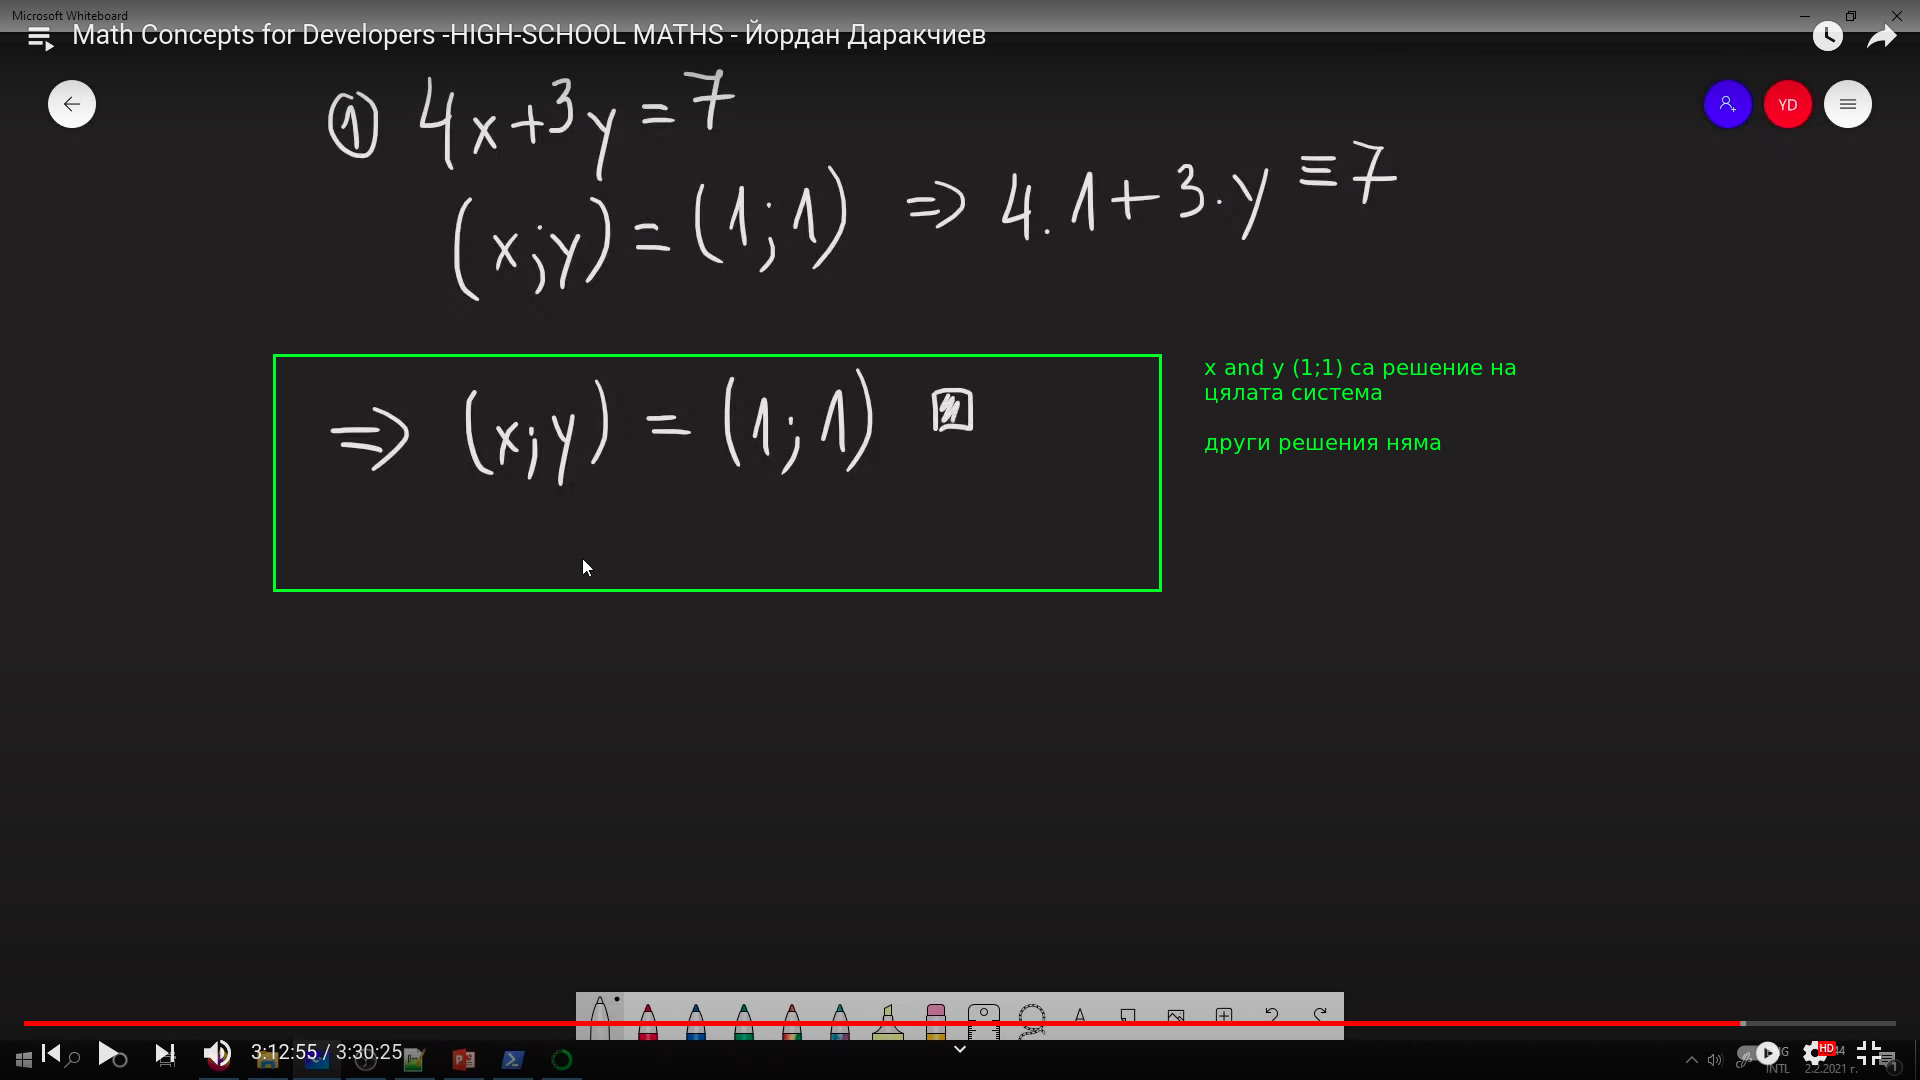 Microsoft Whiteboard
Math Concepts for Developers -HIGH-SCHOOL MATHS - Йордан Даракчиев
YD
① 4x+3y=7
(x;y)=(1;1) => 4.1+3.y≡7
=> (x;y) = (1;1)
x and y (1;1) са решение на
цялата система
други решения няма
3:12:55 / 3:30:25
HD
INTL
2.2.2021 г.